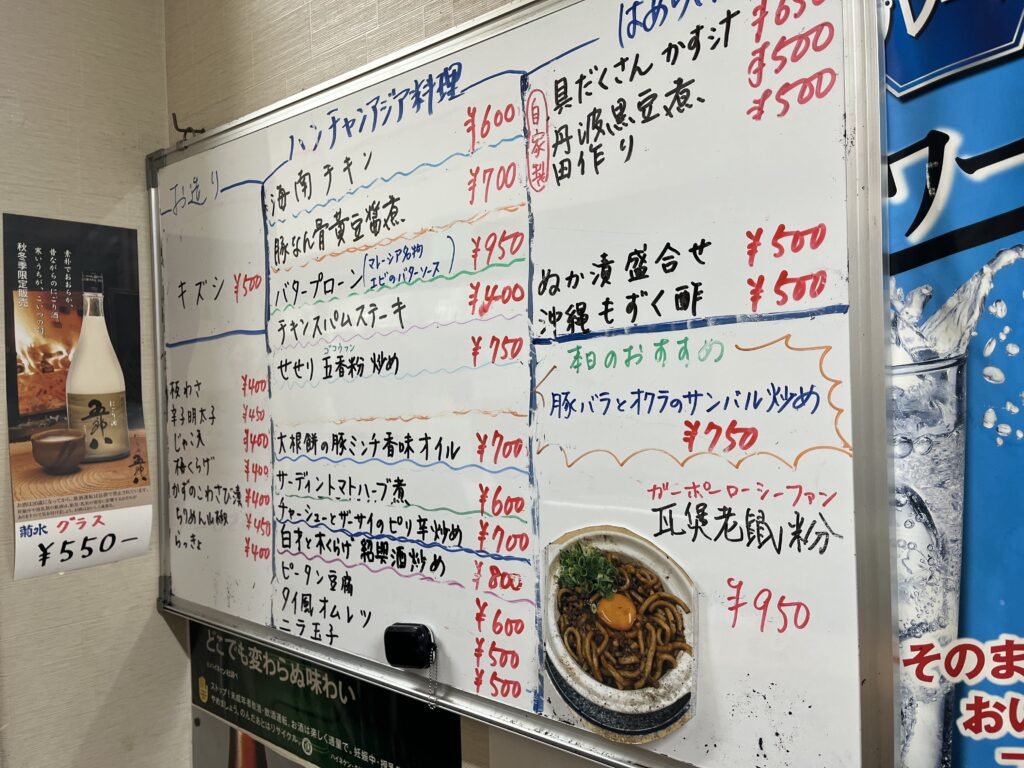 お造り
キズシ ¥500
板わさ ¥400
辛子明太子 ¥450
じゃこ天 ¥400
梅くらげ ¥400
かずのこわさび漬 ¥400
ちりめん山椒 ¥450
らっきょ ¥400
ハンチャンアジア料理
海南チキン ¥600
豚なん骨黄豆醤煮 ¥700
バタープローン(マレーシア名物 エビのバターソース) ¥950
チキンスパムステーキ ¥400
ゴコウフン
せせり 五香粉 炒め ¥750
大根餅の豚ミンチ香味オイル ¥700
サーディントマトハーブ煮 ¥600
チャーシューとザーサイのピリ辛炒め ¥700
白才と木くらげ 紹興酒炒め ¥800
ピータン豆腐 ¥600
タイ風オムレツ ¥500
ニラ玉子 ¥500
自家製
具だくさん かす汁 ¥650
丹波黒豆煮 ¥500
田作り ¥500
ぬか漬 盛合せ ¥500
沖縄もずく酢 ¥500
本日のおすすめ
豚バラとオクラのサンバル炒め
¥750
ガーポーローシーファン
瓦煲老鼠粉
¥950
素朴でおおらか、
昔ながらのにごり酒
寒いうちが、こいつの旬。
秋冬季限定販売
五郎八
菊水 グラス
¥550-
どこでも変わらぬ味わい
ワー
そのま
おい